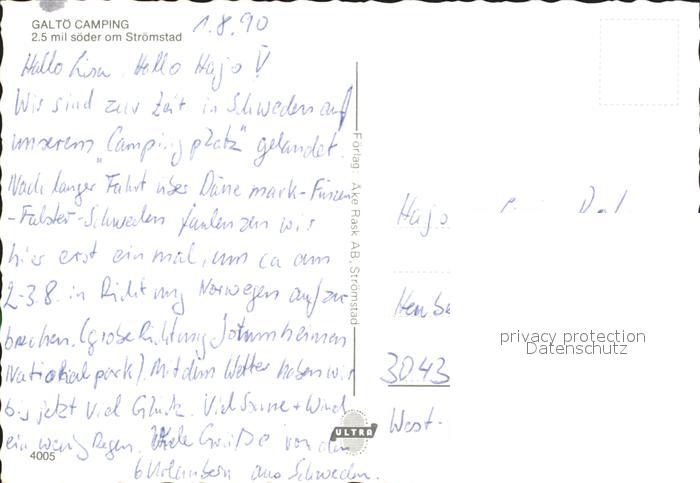 GALTÖ CAMPING
2.5 mil söder om Strömstad
1.8.90
Hallo Lisa. Hallo Hajo!
Wir sind zur Zeit in Schweden auf
unserem "Campingplatz" gelandet.
Nach langer Fahrt über Däne mark-Fünen
-Falster-Schweden faulenzen wir
hier erst ein mal, um ca am
2-3.8. in Richtung Norwegen aufzu-
brechen. (grobe Richtung Jotunheimen
Nationalpark). Mit dem Wetter haben wir
bis jetzt viel Glück. Viel Sonne + Wind
ein wenig Regen. Viele Grüße von den
6 Urlaubern aus Schweden.
4005
Förlag: Åke Rask AB, Strömstad
ULTRA
Hajo
3043
West-
privacy protection
Datenschutz